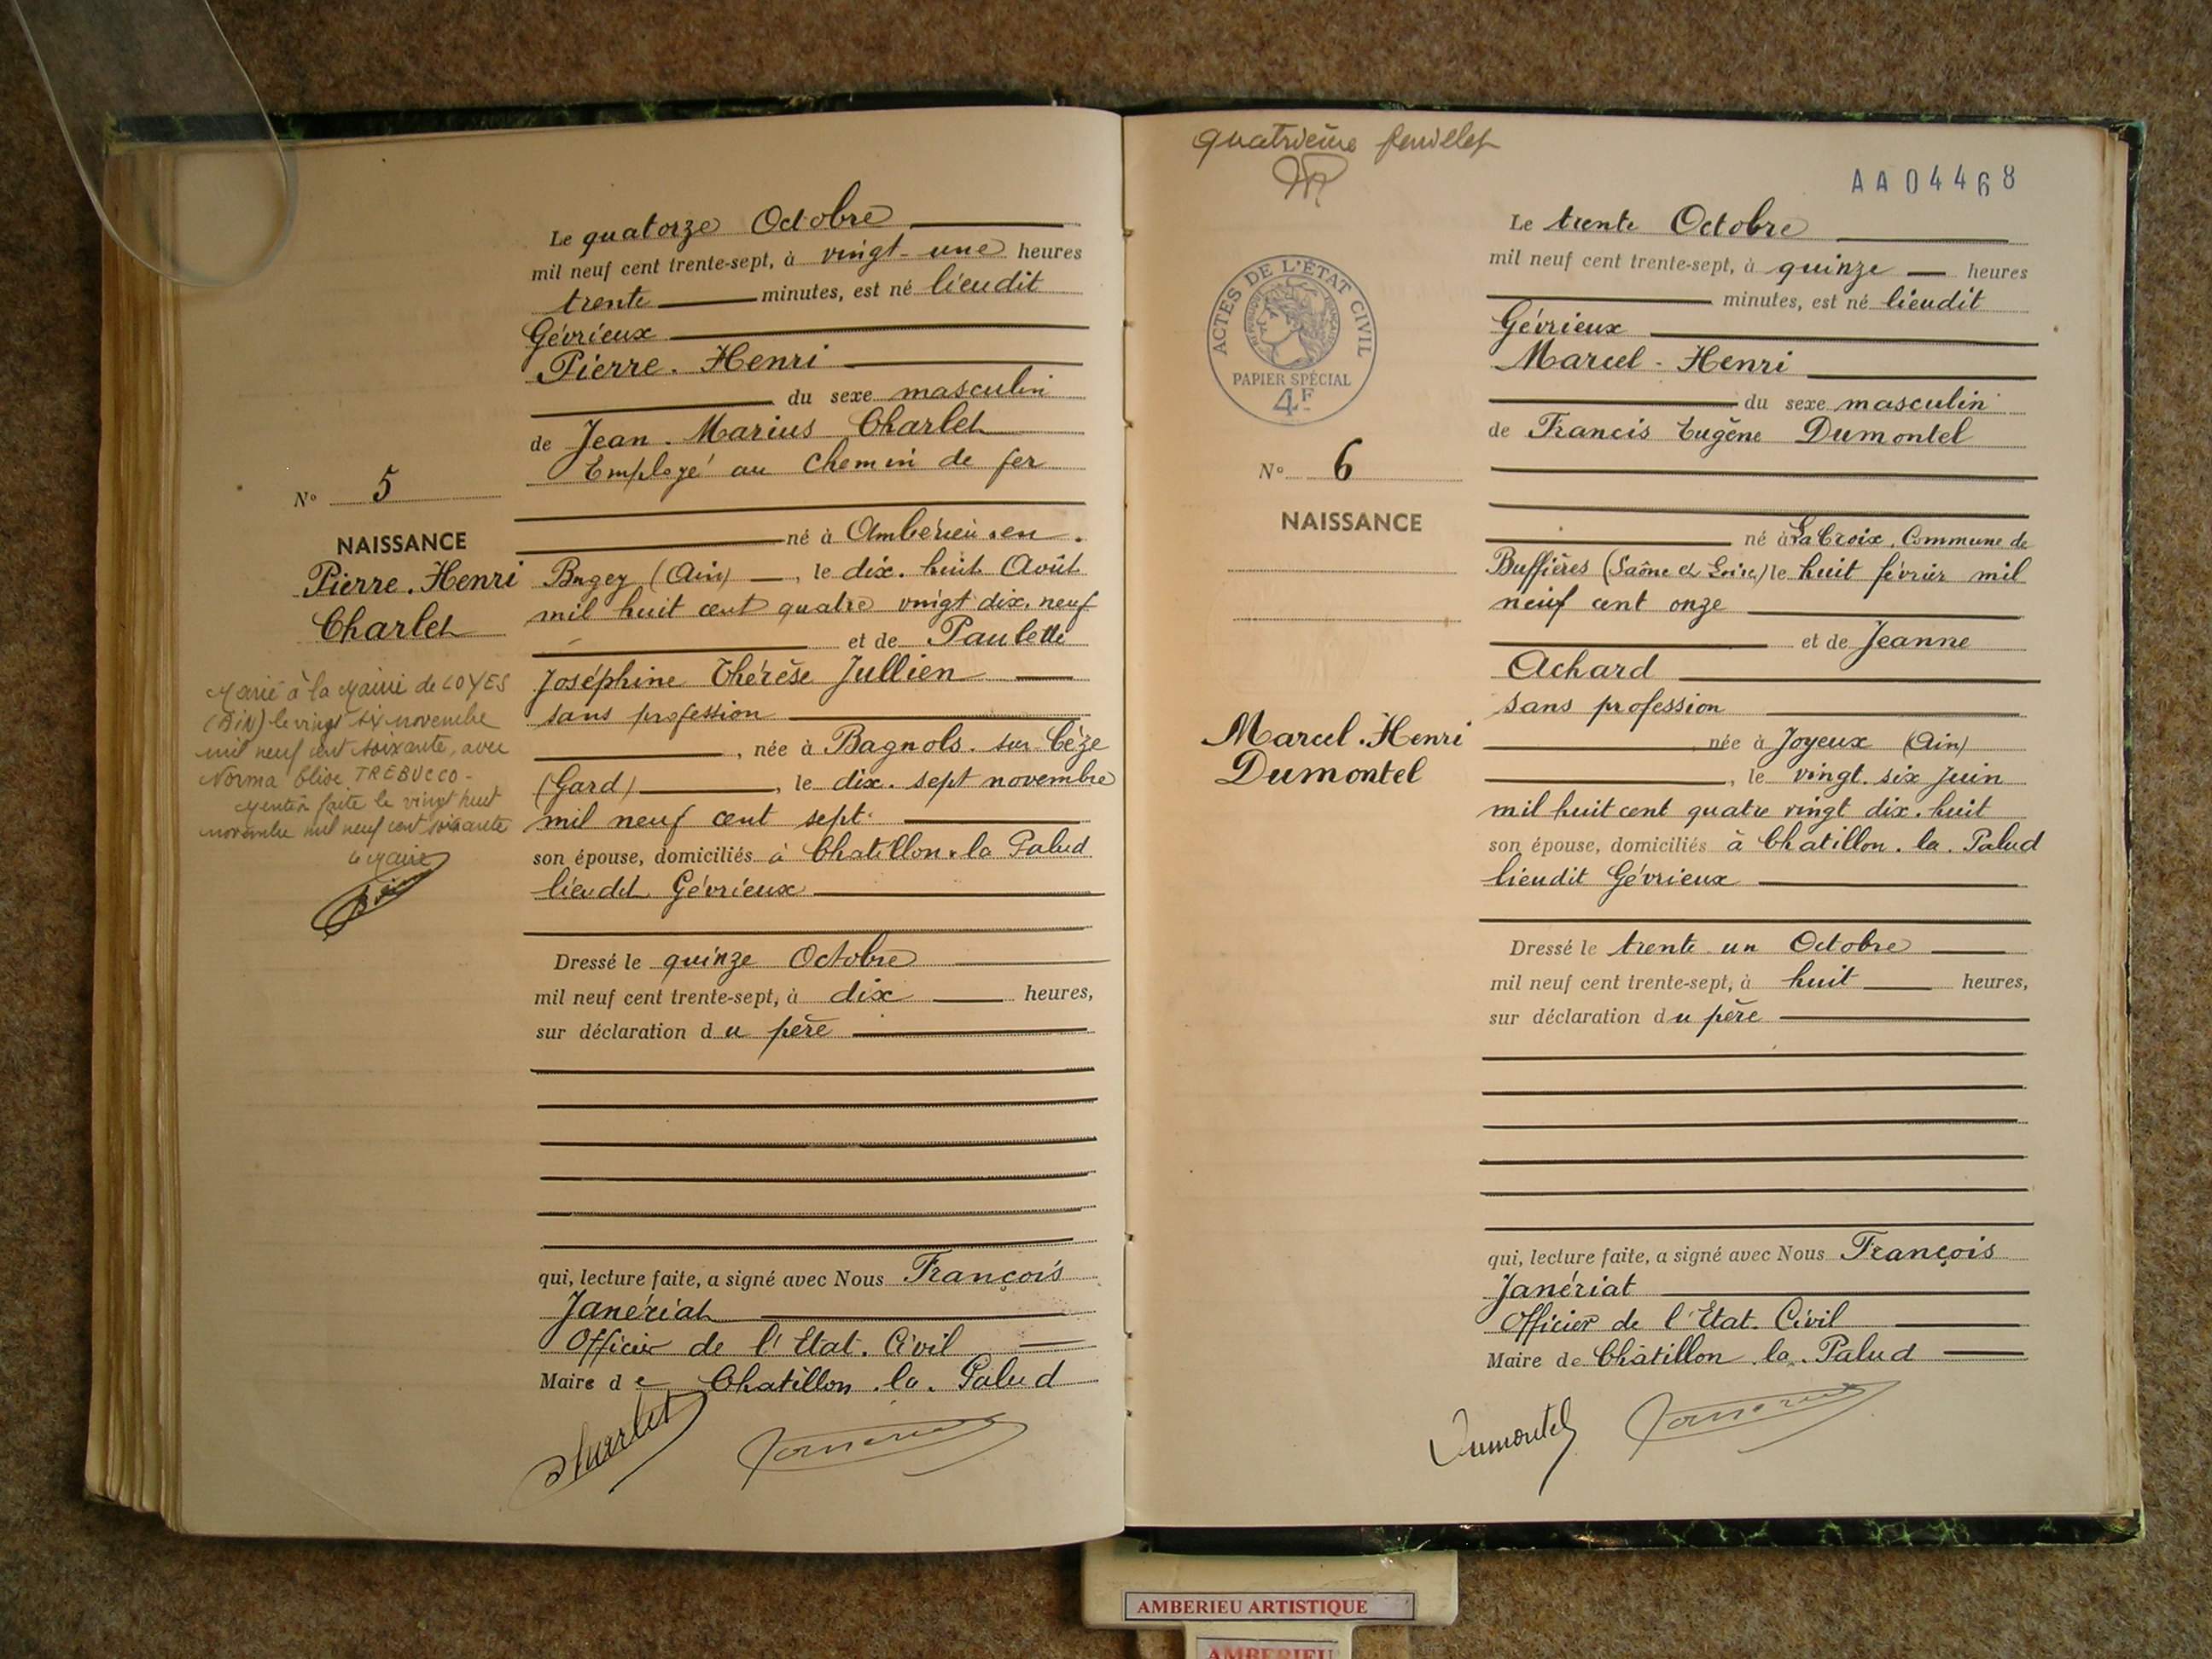 Le quatorze Octobre
mil neuf cent trente-sept, à vingt-une heures
trente minutes, est né lieudit
Gévrieux
Pierre-Henri
du sexe masculin
de Jean-Marius Charlet
Employé au Chemin de fer
N° 5
NAISSANCE
Pierre-Henri
Charlet
né à Ambérieu-en-
Bugey (Ain), le dix-huit Août
mil huit cent quatre vingt dix-neuf
et de Paulette
Joséphine Thérèse Jullien
sans profession
, née à Bagnols-sur-Cèze
(Gard), le dix-sept novembre
mil neuf cent sept.
son épouse, domiciliés à Chatillon-la Palud
lieudit Gévrieux
Marié à la Mairie de LOYES
(AiN) le vingt six novembre
mil neuf cent soixante, avec
Norma Elise TREBUCCO-
Mention faite le vingt huit
novembre mil neuf cent soixante
Le Maire
Dressé le quinze Octobre
mil neuf cent trente-sept, à dix heures,
sur déclaration du père
qui, lecture faite, a signé avec Nous François
Janériat
Officier de l'Etat-Civil
Maire de Chatillon-la-Palud
Charlet
quatrième feuillet
AA04468
Le trente Octobre
mil neuf cent trente-sept, à quinze heures
minutes, est né lieudit
Gévrieux
Marcel-Henri
du sexe masculin
de Francis Eugène Dumontel
ACTES DE L'ÉTAT CIVIL
RÉPUBLIQUE FRANÇAISE
PAPIER SPÉCIAL
4F
N° 6
NAISSANCE
Marcel-Henri
Dumontel
né à La Croix, Commune de
Buffières (Saône et Loire) le huit février mil
neuf cent onze
et de Jeanne
Achard
sans profession
, née à Joyeux (Ain)
, le vingt-six Juin
mil huit cent quatre vingt dix-huit
son épouse, domiciliés à Chatillon-la-Palud
lieudit Gévrieux
Dressé le trente un Octobre
mil neuf cent trente-sept, à huit heures,
sur déclaration du père
qui, lecture faite, a signé avec Nous François
Janériat
Officier de l'Etat-Civil
Maire de Châtillon-la-Palud
Dumontel
AMBERIEU ARTISTIQUE
AMBERIEU